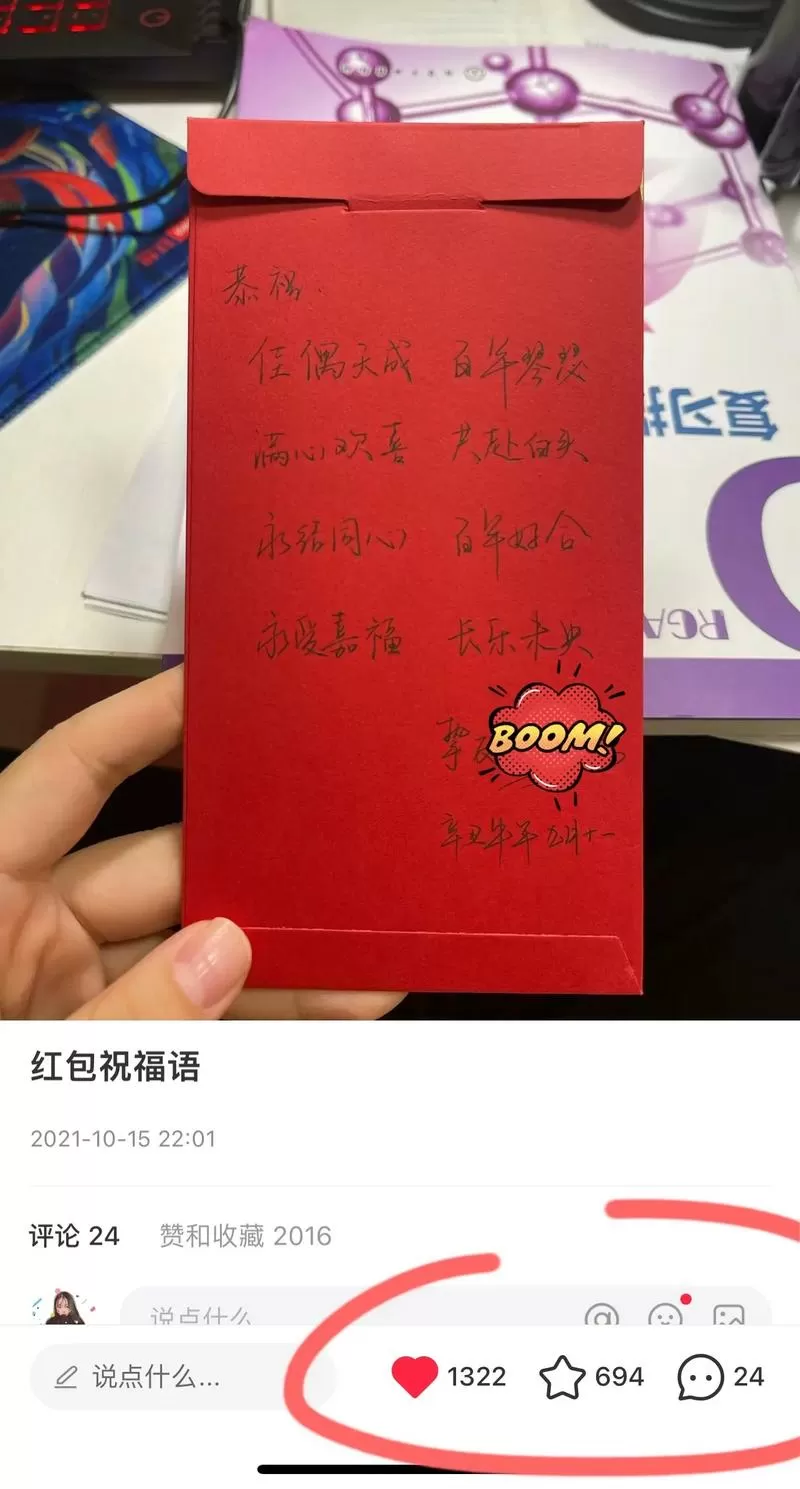 恭祝.
佳偶天成 百年琴瑟
满心欢喜 共赴白头
永结同心 百年好合
永受嘉福 长乐未央
挚友
BOOM!
辛丑牛年 九月十一
复习指
RGA
红包祝福语
2021-10-15 22:01
评论 24 赞和收藏 2016
说点什么
说点什么... 1322 694 24